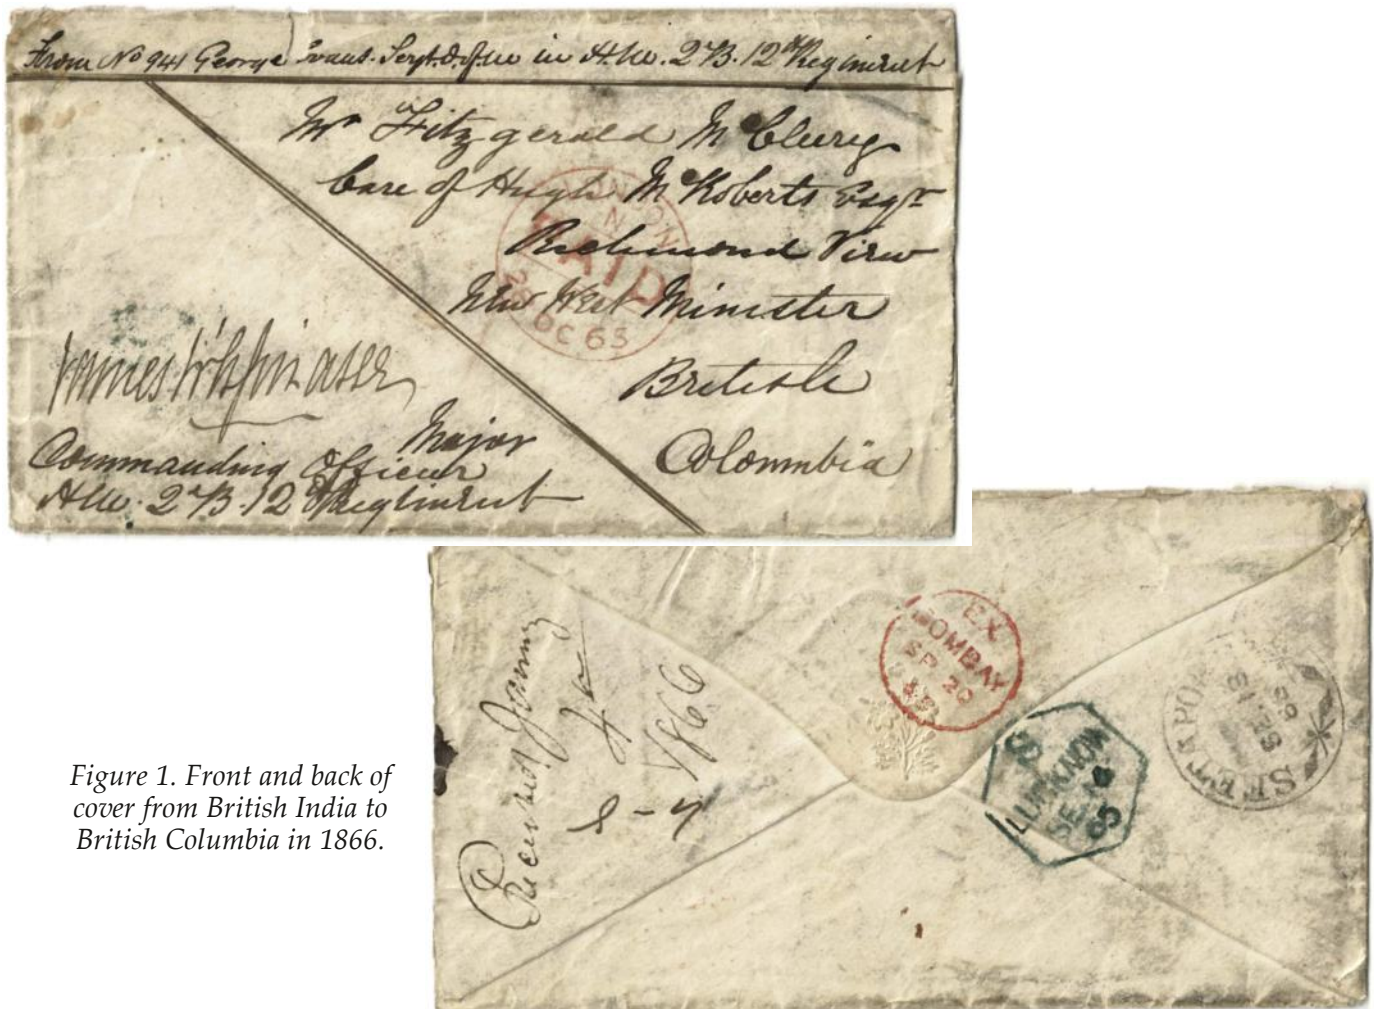 From No 941 George Evans. Sergt. in H.M. 2d B. 12th Regiment
Mr Fitzgerald McCleery
Care of Hugh McRoberts Esqr
Richmond View
New West Minister
British
Colommbia
James
Major
Commanding Officer
H.M. 2d B. 12 Regiment
LONDON
N
PAID
OC 65
EX
BOMBAY
SP 20
65
LUCKNOW
SE
65
SEETAPORE
SE 13
65
Received Jany
1866
Figure 1. Front and back of
cover from British India to
British Columbia in 1866.